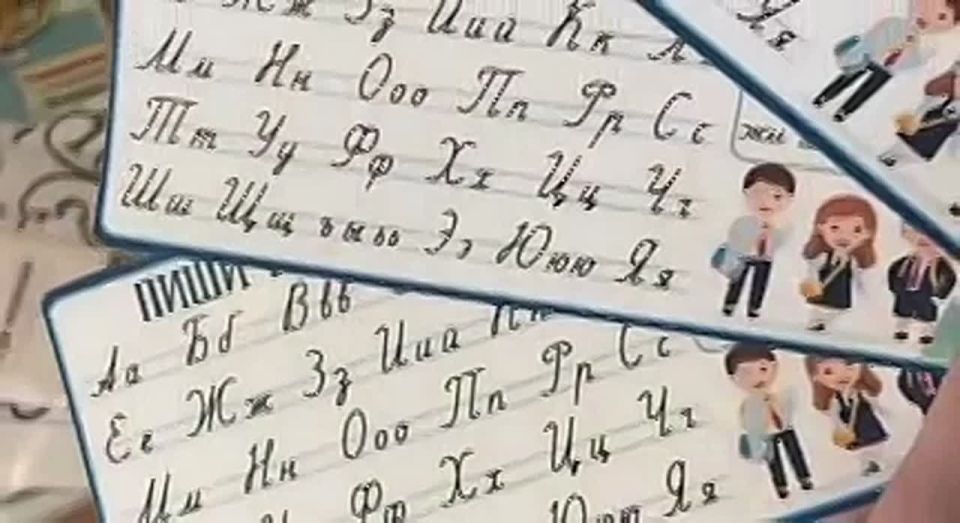 Жж Зз Ииа Кк
Мм Нн Ооо Пп Рр Сс
Тт Уу Фф Хх Цц Чч
Шш Щщ ъыьо Ээ Ююю Яя
жи
Яя
ПИШИ
Аа Бб Ввв
Ее Жж Зз Ииа Кк
Мм Нн Ооо Пп Рр Сс
Фф Хх Цц Чч
Ююю Яя